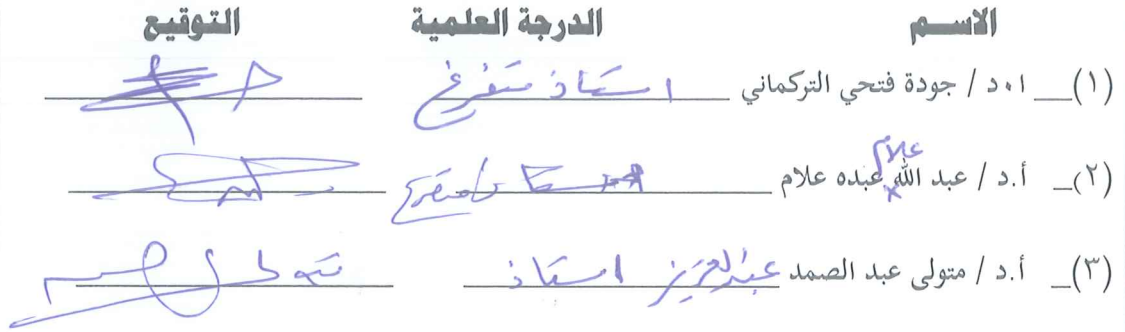 الاسم الدرجة العلمية التوقيع
(١) ا.د / جودة فتحي التركماني استاذ متفرغ
(٢) أ.د / عبد الله علام عبده علام استاذ متفرغ
(٣) أ.د / متولى عبد الصمد عبد العزيز استاذ متولى